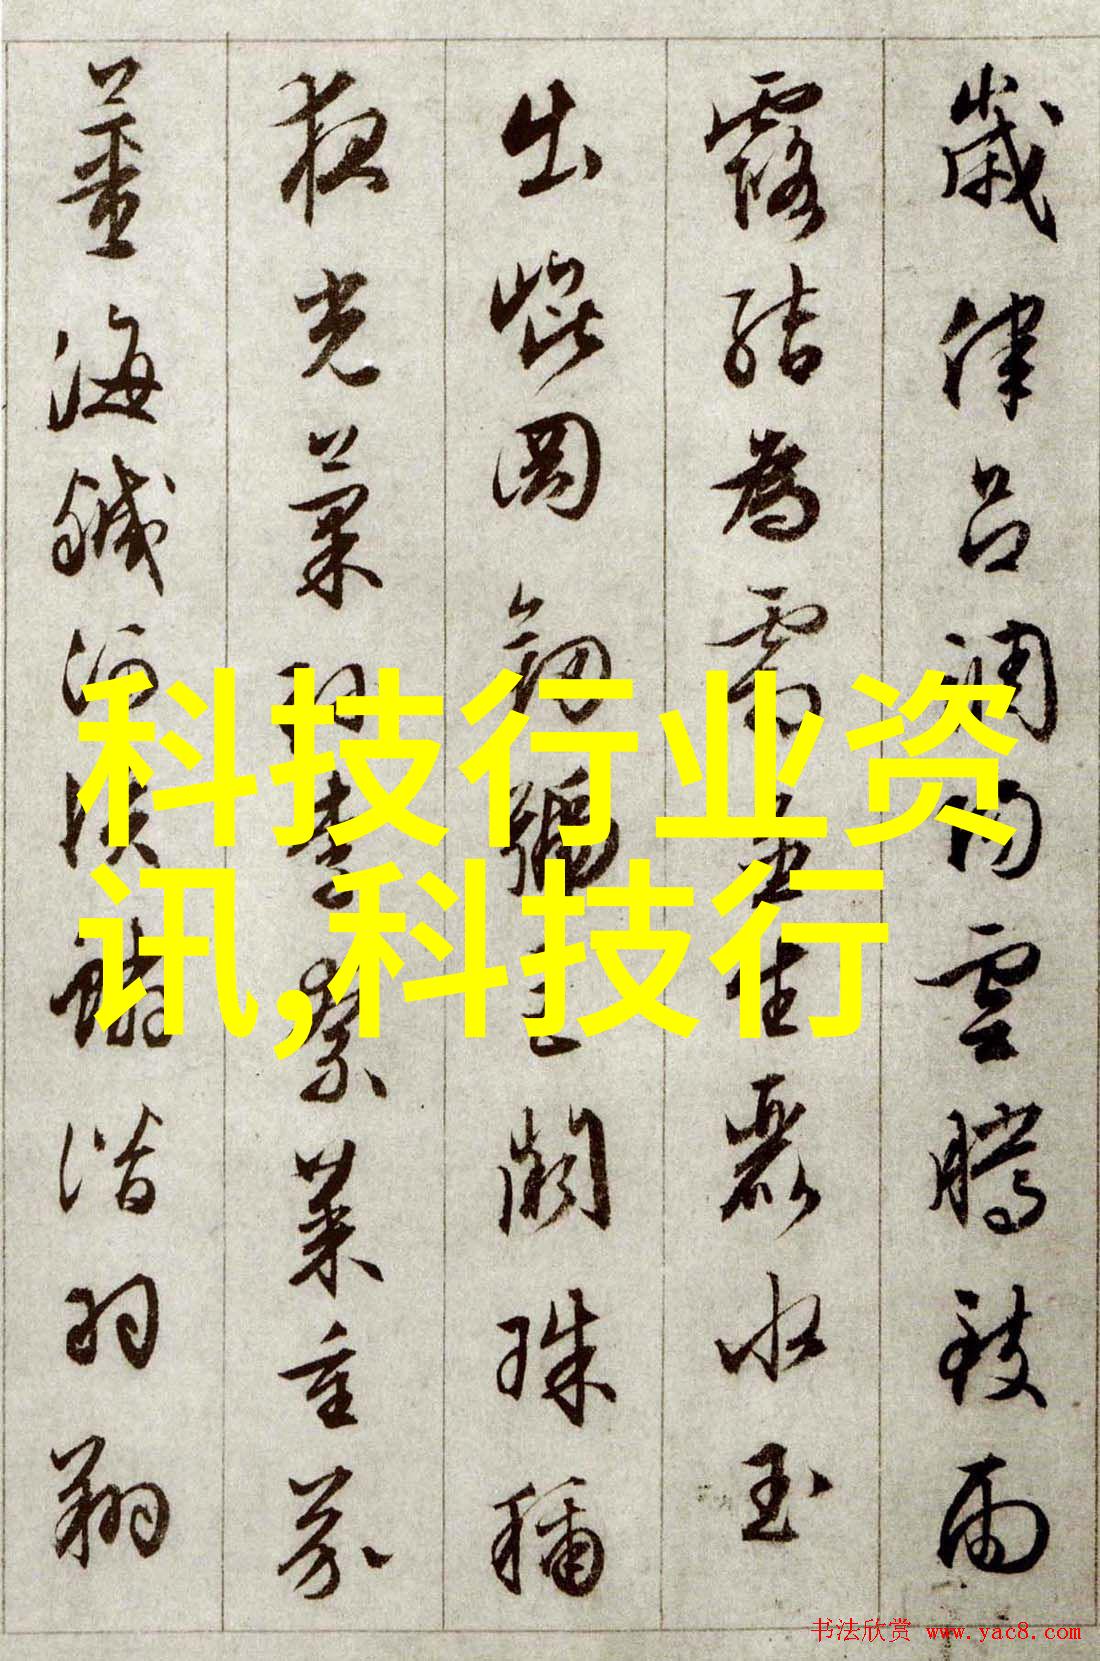 歲律呂調陽雲騰致雨
露結為霜金生麗水玉
出崐岡劒號巨闕珠稱
夜光菓珍李柰菜重芥
薑海鹹河淡鱗潛羽翔
科技行业资
讯,科技行
书法欣赏 www.yac8.com